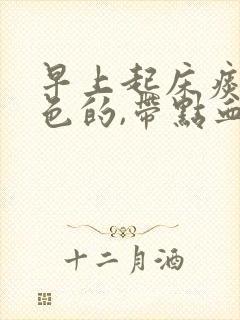 早上起床痰
色的,帶點血
十二月酒